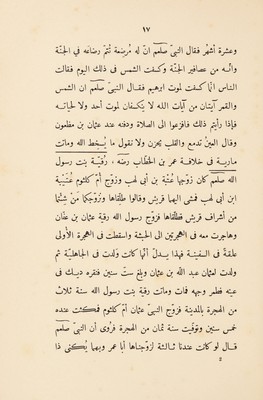 ١٧
وعشرة أشهر فقال النبىّ صلعم انّ له مُرضِعة تُتمّ رضاعه فى الجنّة
وانّه من عصافير الجنّة وكسفت الشمس فى ذلك اليوم فقالت
الناس انّما كسفت لموت ابرهيم فقال النبىّ صلعم ان الشمس
والقمر آيتان من آيات الله لا ينكسفان لموت أحد ولا لحياته
فإذا رأيتم ذلك فافزعوا الى الصلاة ودفنه عند عثمان بن مظعون
وقال العينُ تدمع والقلب يحزن ولا نقول ما يُسخط الله وماتت
مارية فى خلافة عمر بن الخطّاب رضه ، رُقيّة بنت رسول
الله صلعم كان زوّجها عُتْبة بن أبى لهب وزوّج أمّ كلثوم عُتَيبة
ابن أبى لهب فمشى اليهما قريش وقالوا طلّقاها ونزوّجكما مَنْ شئتما
من أشراف قريش فطلّقاها فزوّج رسول الله رقية عثمان بن عفّان
وهاجرت معه فى الهجرتين الى الحبشة واسقطت فى الهجرة الأولى
علقةً فى السفينة فهذا يدلّ انّها كانت ولدت فى الجاهليّة ثم
ولدت لعثمان عبد الله بن عثمان وبلغ ستّ سنين فنقره ديك فى
عينه فطمر وجهه فمات وماتت رقية بنت رسول الله سنة ثلاث
من الهجرة بالمدينة فزوّج النبىّ عثمان أمّ كلثوم فمكثت عنده
خمس سنين وتوفّيت سنة ثمان من الهجرة فرُوى أن النبىّ صلعم
قال لو كانت عندنا ثالثة لزوّجناها أبا عمر وبهما يُكنى ذا
٢